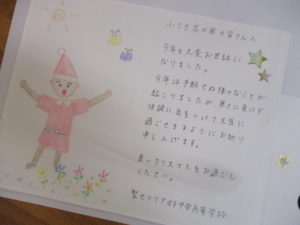 小さき花の園の皆さんへ
今年も大変お世話に
なりました。
今年は予期せぬ様々なことが
起こりましたが、寒さに負けず
体調に気をつけて元気に
過ごせますようにお祈り
申し上げます。
良いクリスマスをお過ごし
ください。
聖セシリア女子中学高等学校